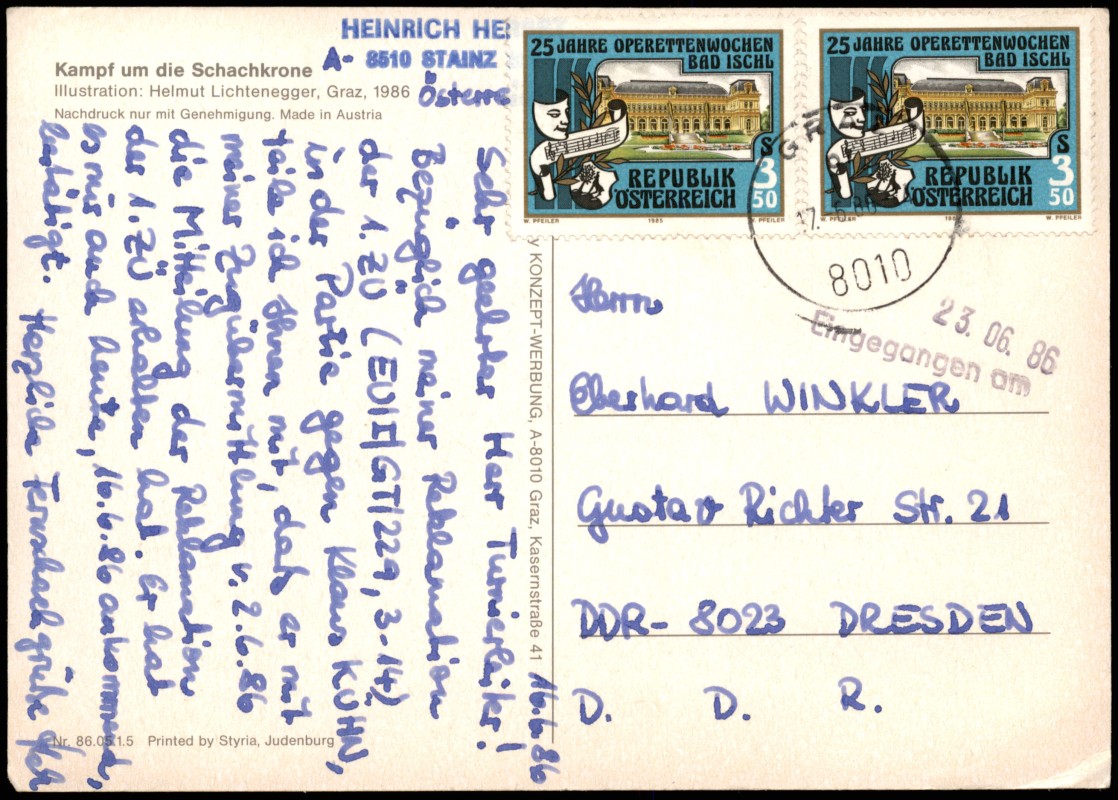 HEINRICH HE
A- 8510 STAINZ
Österre
Kampf um die Schachkrone
Illustration: Helmut Lichtenegger, Graz, 1986
Nachdruck nur mit Genehmigung. Made in Austria
16.6.86
Sehr geehrter Herr Turnierleiter!
Bezüglich meiner Reklamation
der 1. ZÜ (EU/II/GT/229, 3-14)
in der Partie gegen Klaus KÜHN,
teile ich Ihnen mit, daß er mit
meiner Zugübermittlung v. 2.6.86
die Mitteilung der Reklamation
der 1. ZÜ erhalten hat. Er hat
es mir auch heute, 16.6.86 ankommend,
bestätigt. Herzliche Fernschachgrüße
Nr. 86.05.1.5 Printed by Styria, Judenburg
KONZEPT-WERBUNG, A-8010 Graz, Kasernstraße 41
25 JAHRE OPERETTENWOCHEN
BAD ISCHL
S
3
50
REPUBLIK
ÖSTERREICH
W. PFEILER 1985
25 JAHRE OPERETTENWOCHEN
BAD ISCHL
S
3
50
REPUBLIK
ÖSTERREICH
W. PFEILER
8010
23.06.86
Eingegangen am
Herrn
Eberhard WINKLER
Gustav Richter Str. 21
DDR- 8023 DRESDEN
D. D. R.